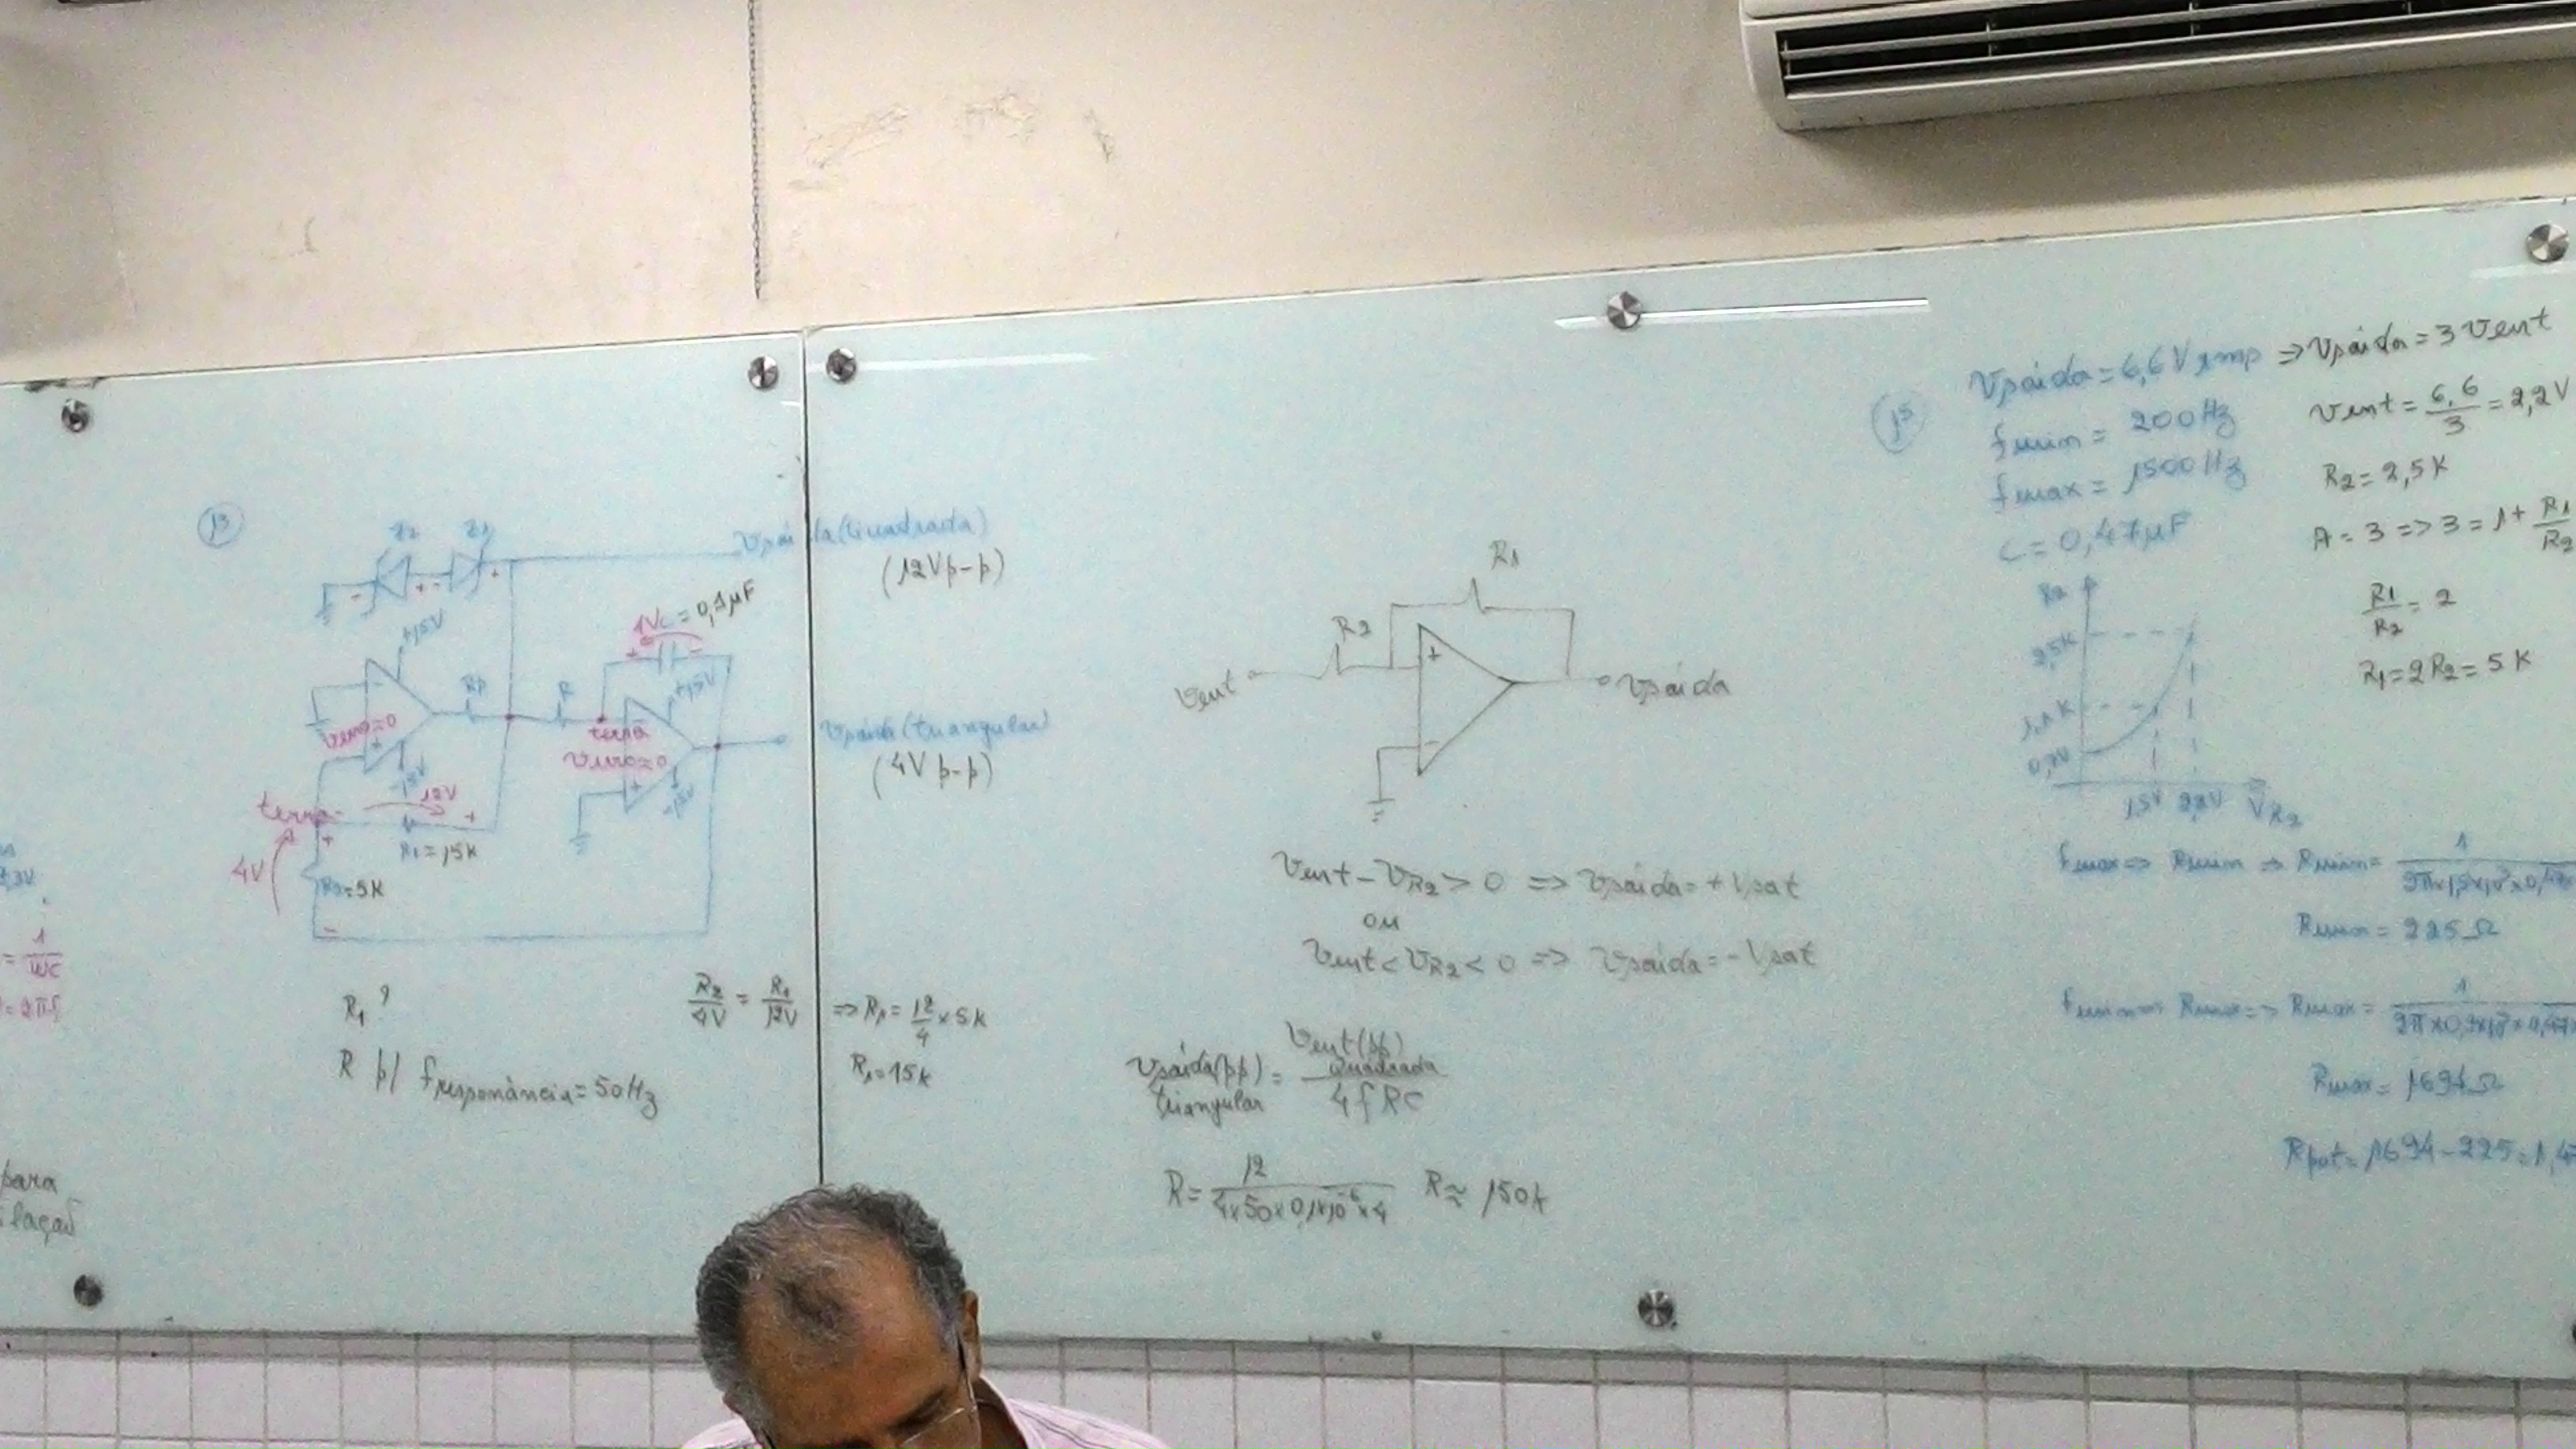 13
Z2 Z1
Vsaída (Quadrada)
(12Vp-p)
+15V
4V C = 0,1µF
+15V
RP
R
Verro=0
terra
Verro=0
-15V
12V
-15V
Vsaída (triangular)
(4V p-p)
terra
R1 = 15K
4V
R2=5K
R1?
R p/ fressonância = 50Hz
R2/4V = R1/12V => R1 = 12/4 x 5K
R1=15K
R1
R2
Vent
Vsaída
Vent - VR2 > 0 => Vsaída = +Vsat
ou
Vent < VR2 < 0 => Vsaída = -Vsat
Vsaída(pp) triangular = Vent(pp) quadrada / 4fRC
R = 12 / 4x50x0,1x10⁻⁶x4 R ≈ 150k
15
Vsaída = 6,6V => Vsaída = 3 Vent
fmin = 200 Hz
fmax = 1500 Hz
C = 0,47µF
Vent = 6,6/3 = 2,2V
R2 = 2,5K
A = 3 => 3 = 1 + R1/R2
R1/R2 = 2
R1 = 2R2 = 5K
R2
2,5K
1,1K
1,5V 2,2V VR2
fmax => Rmin => Rmin = 1
Rmin = 225Ω
fmin => Rmax => Rmax = 1
Rmax = 1694Ω
Rpot = 1694 - 225 = 1,47
= 1/WC
= 2πf
para